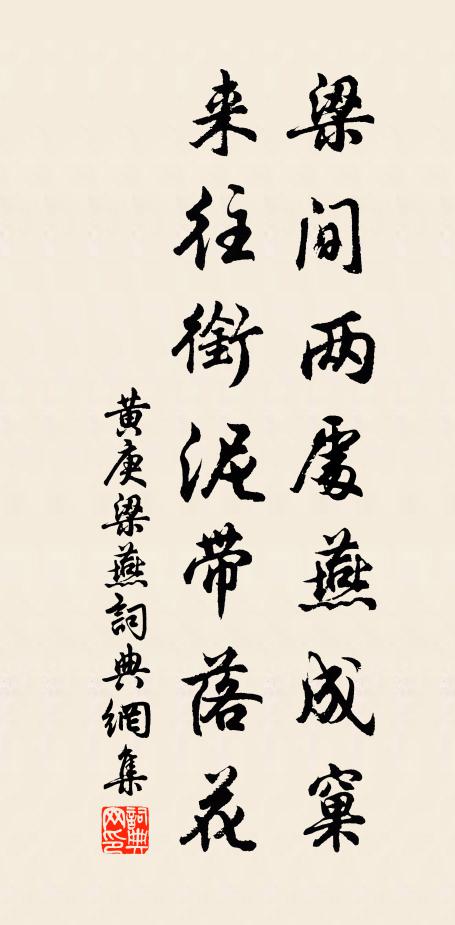 梁间两處燕成窠
来往銜泥带落花
黄庚梁燕詞典網集
詞典网印